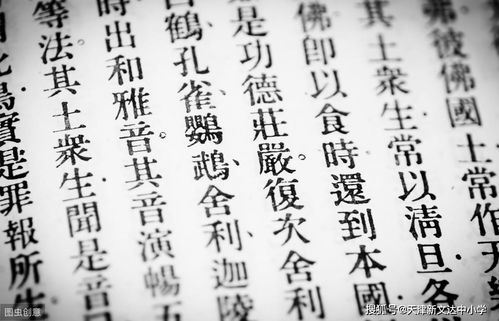 弗彼佛國土常作天
其土衆生常以清旦各
佛即以食時還到本國、
是功德莊嚴。復次舍利
白鶴、孔雀、鸚鵡、舍利、迦陵
時出和雅音。其音演暢五
等法。其土衆生聞是音
鳥實是罪報所生
图虫创意
搜狐号@天津新文达中小学